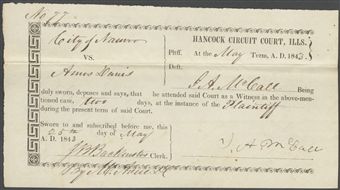 No 77
HANCOCK CIRCUIT COURT, ILLS.
City of Nauvoo
Plff. At the May Term, A. D. 1843.
VS.
Deft.
Amos Davis
J. A. McCall Being
duly sworn, deposes and says, that he attended said Court as a Witness in the above-men-
tioned case, two days, at the instance of the Plaintiff
during the present term of said Court.
Sworn to and subscribed before me, this
25th day of May
A. D. 1843
J. A. McCall
J B Backenstos Clerk.
By